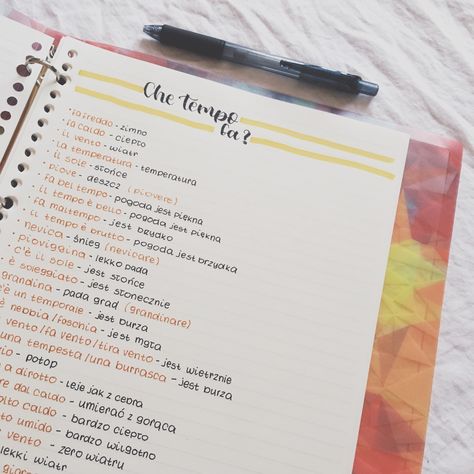 Che tempo
fa?
fa freddo - zimno
fa caldo - ciepło
il vento - wiatr
la temperatura - temperatura
il sole - słońce
piove - deszcz (piovere)
fa bel tempo - pogoda jest piękna
il tempo è bello - pogoda jest piękna
fa maltempo - jest brzydko
il tempo è brutto - pogoda jest brzydka
nevica - śnieg (nevicare)
pioviggina - lekko pada
c'è il sole - jest słońce
è soleggiato - jest słonecznie
grandina - pada grad (grandinare)
c'è un temporale - jest burza
è nebbia/foschia - jest mgła
vento/fa vento/tira vento - jest wietrznie
una tempesta/una burrasca - jest burza
io - potop
a dirotto - leje jak z cebra
re dal caldo - umierać z gorąca
olto caldo - bardzo ciepło
to umido - bardzo wilgotno
vento - zero wiatru
lekki wiatr